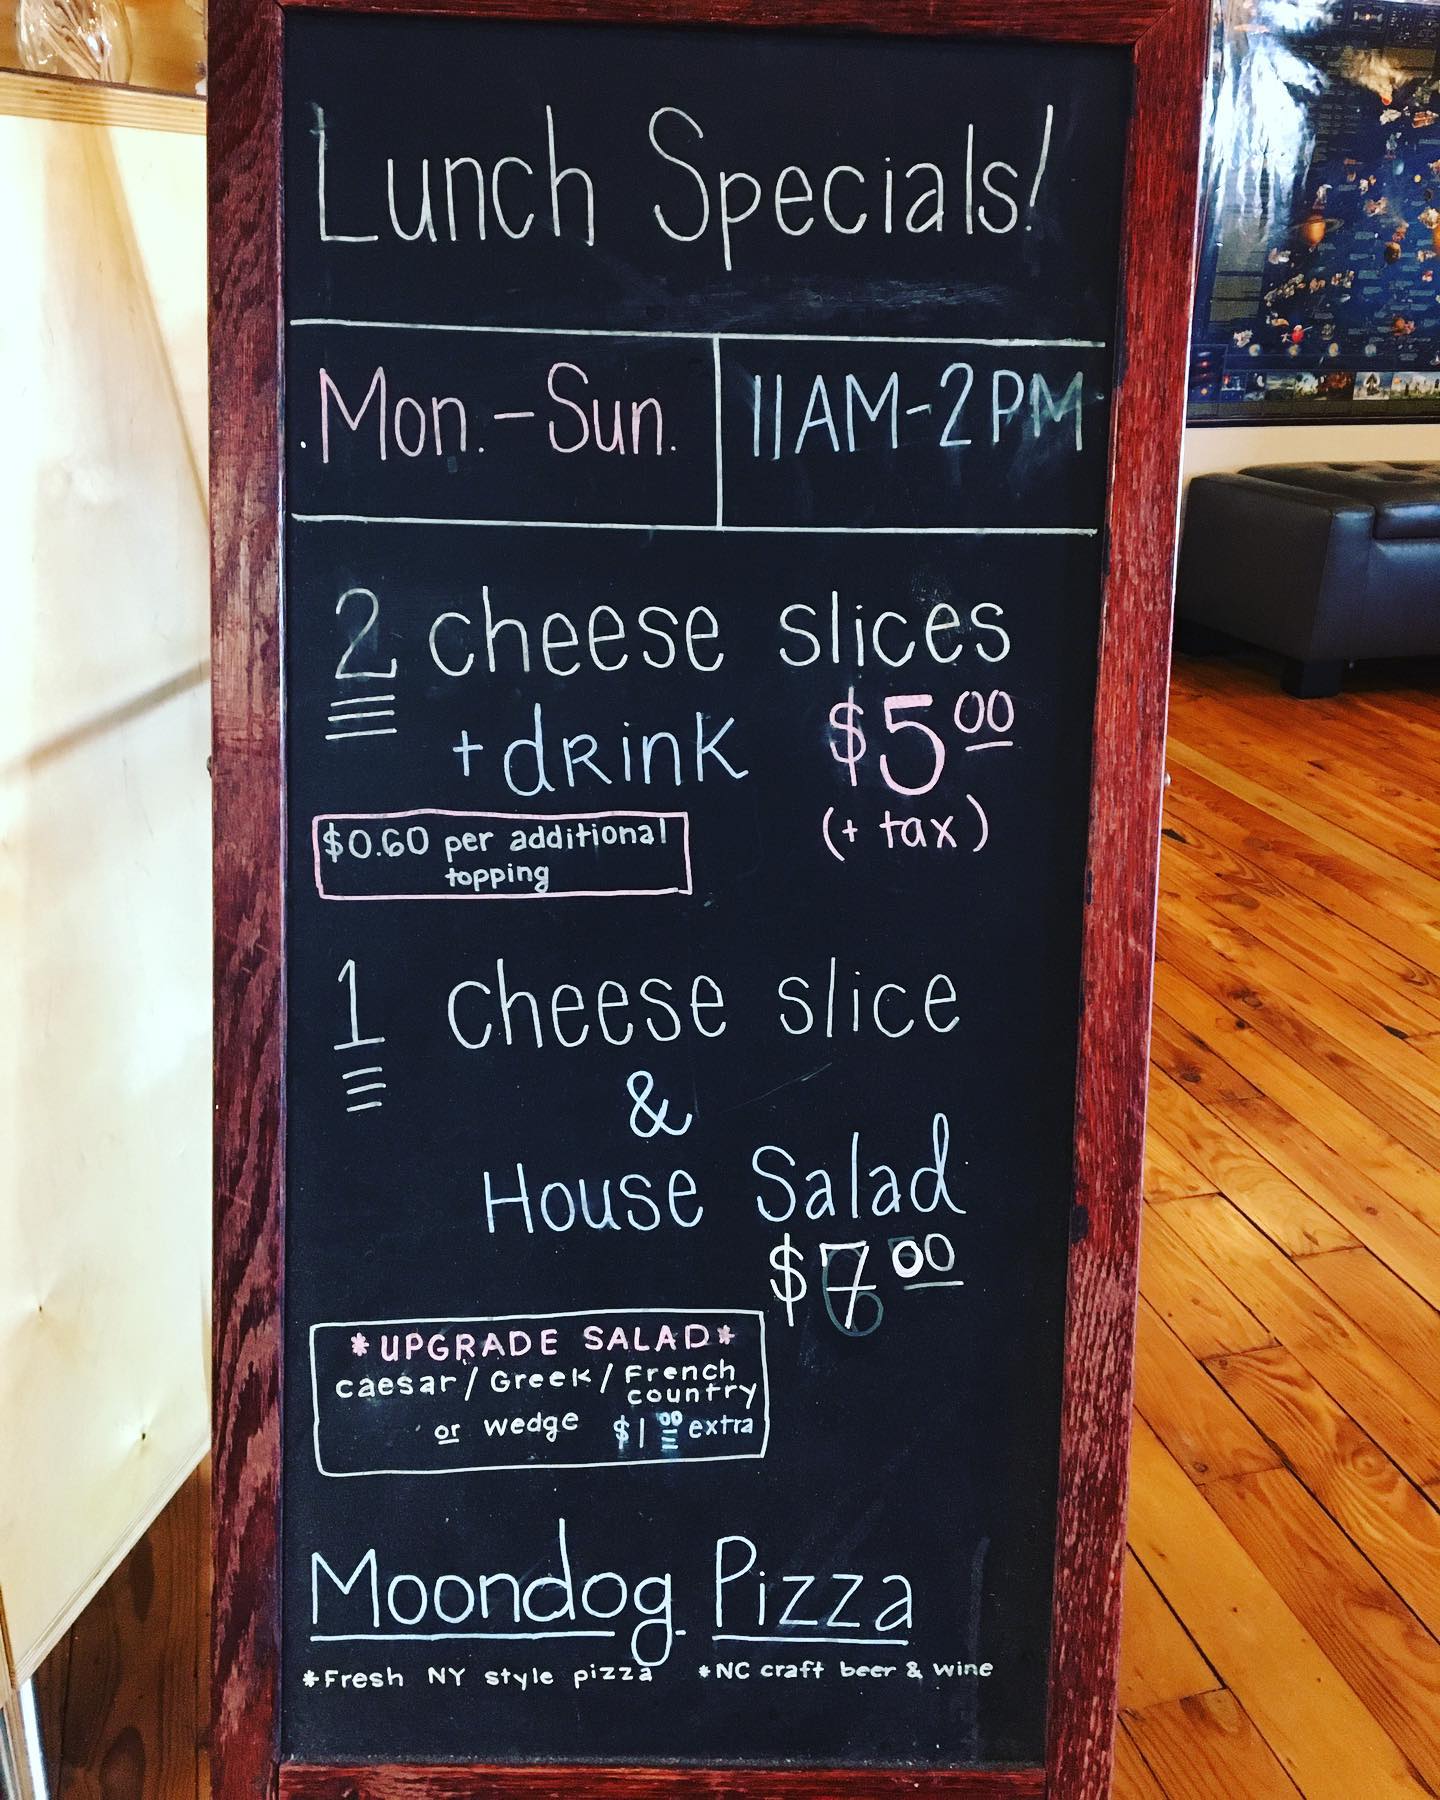 Lunch Specials!
Mon.-Sun. 11AM-2PM
2 cheese slices
+ drink $5.00
(+ tax)
$0.60 per additional
topping
1 cheese slice
&
House Salad
$7.00
*UPGRADE SALAD*
caesar/Greek/French
country
or wedge $1.00 extra
Moondog Pizza
*Fresh NY style pizza *NC craft beer & wine